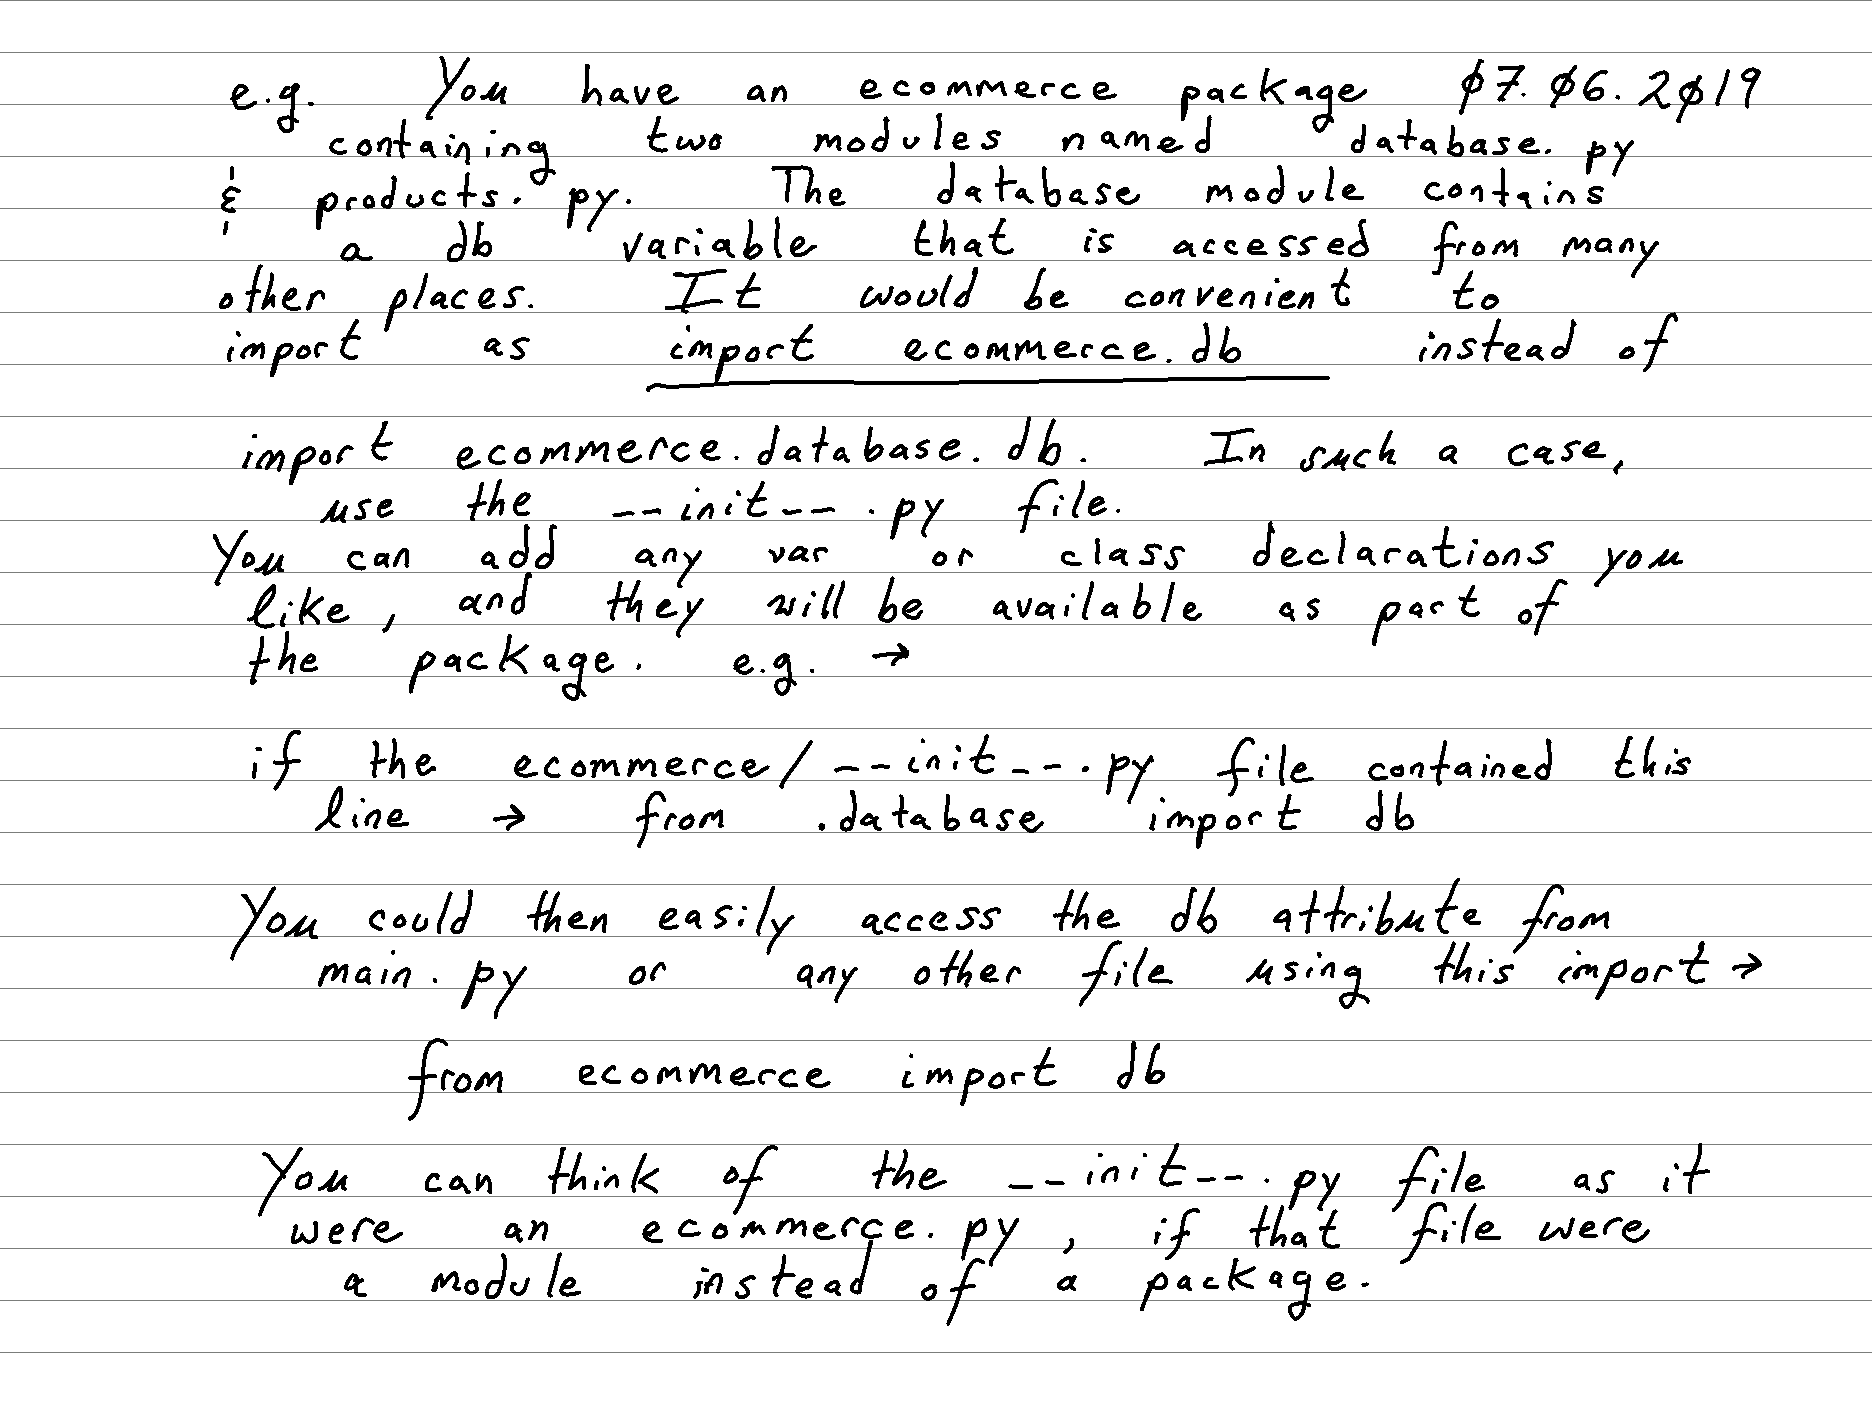 e.g. You have an ecommerce package 07.06.2019
containing two modules named database.py
& products.py. The database module contains
a db variable that is accessed from many
other places. It would be convenient to
import as import ecommerce.db instead of
import ecommerce.database.db. In such a case,
use the __init__.py file.
You can add any var or class declarations you
like, and they will be available as part of
the package. e.g. →
if the ecommerce/__init__.py file contained this
line → from .database import db
You could then easily access the db attribute from
main.py or any other file using this import →
from ecommerce import db
You can think of the __init__.py file as it
were an ecommerce.py, if that file were
a module instead of a package.